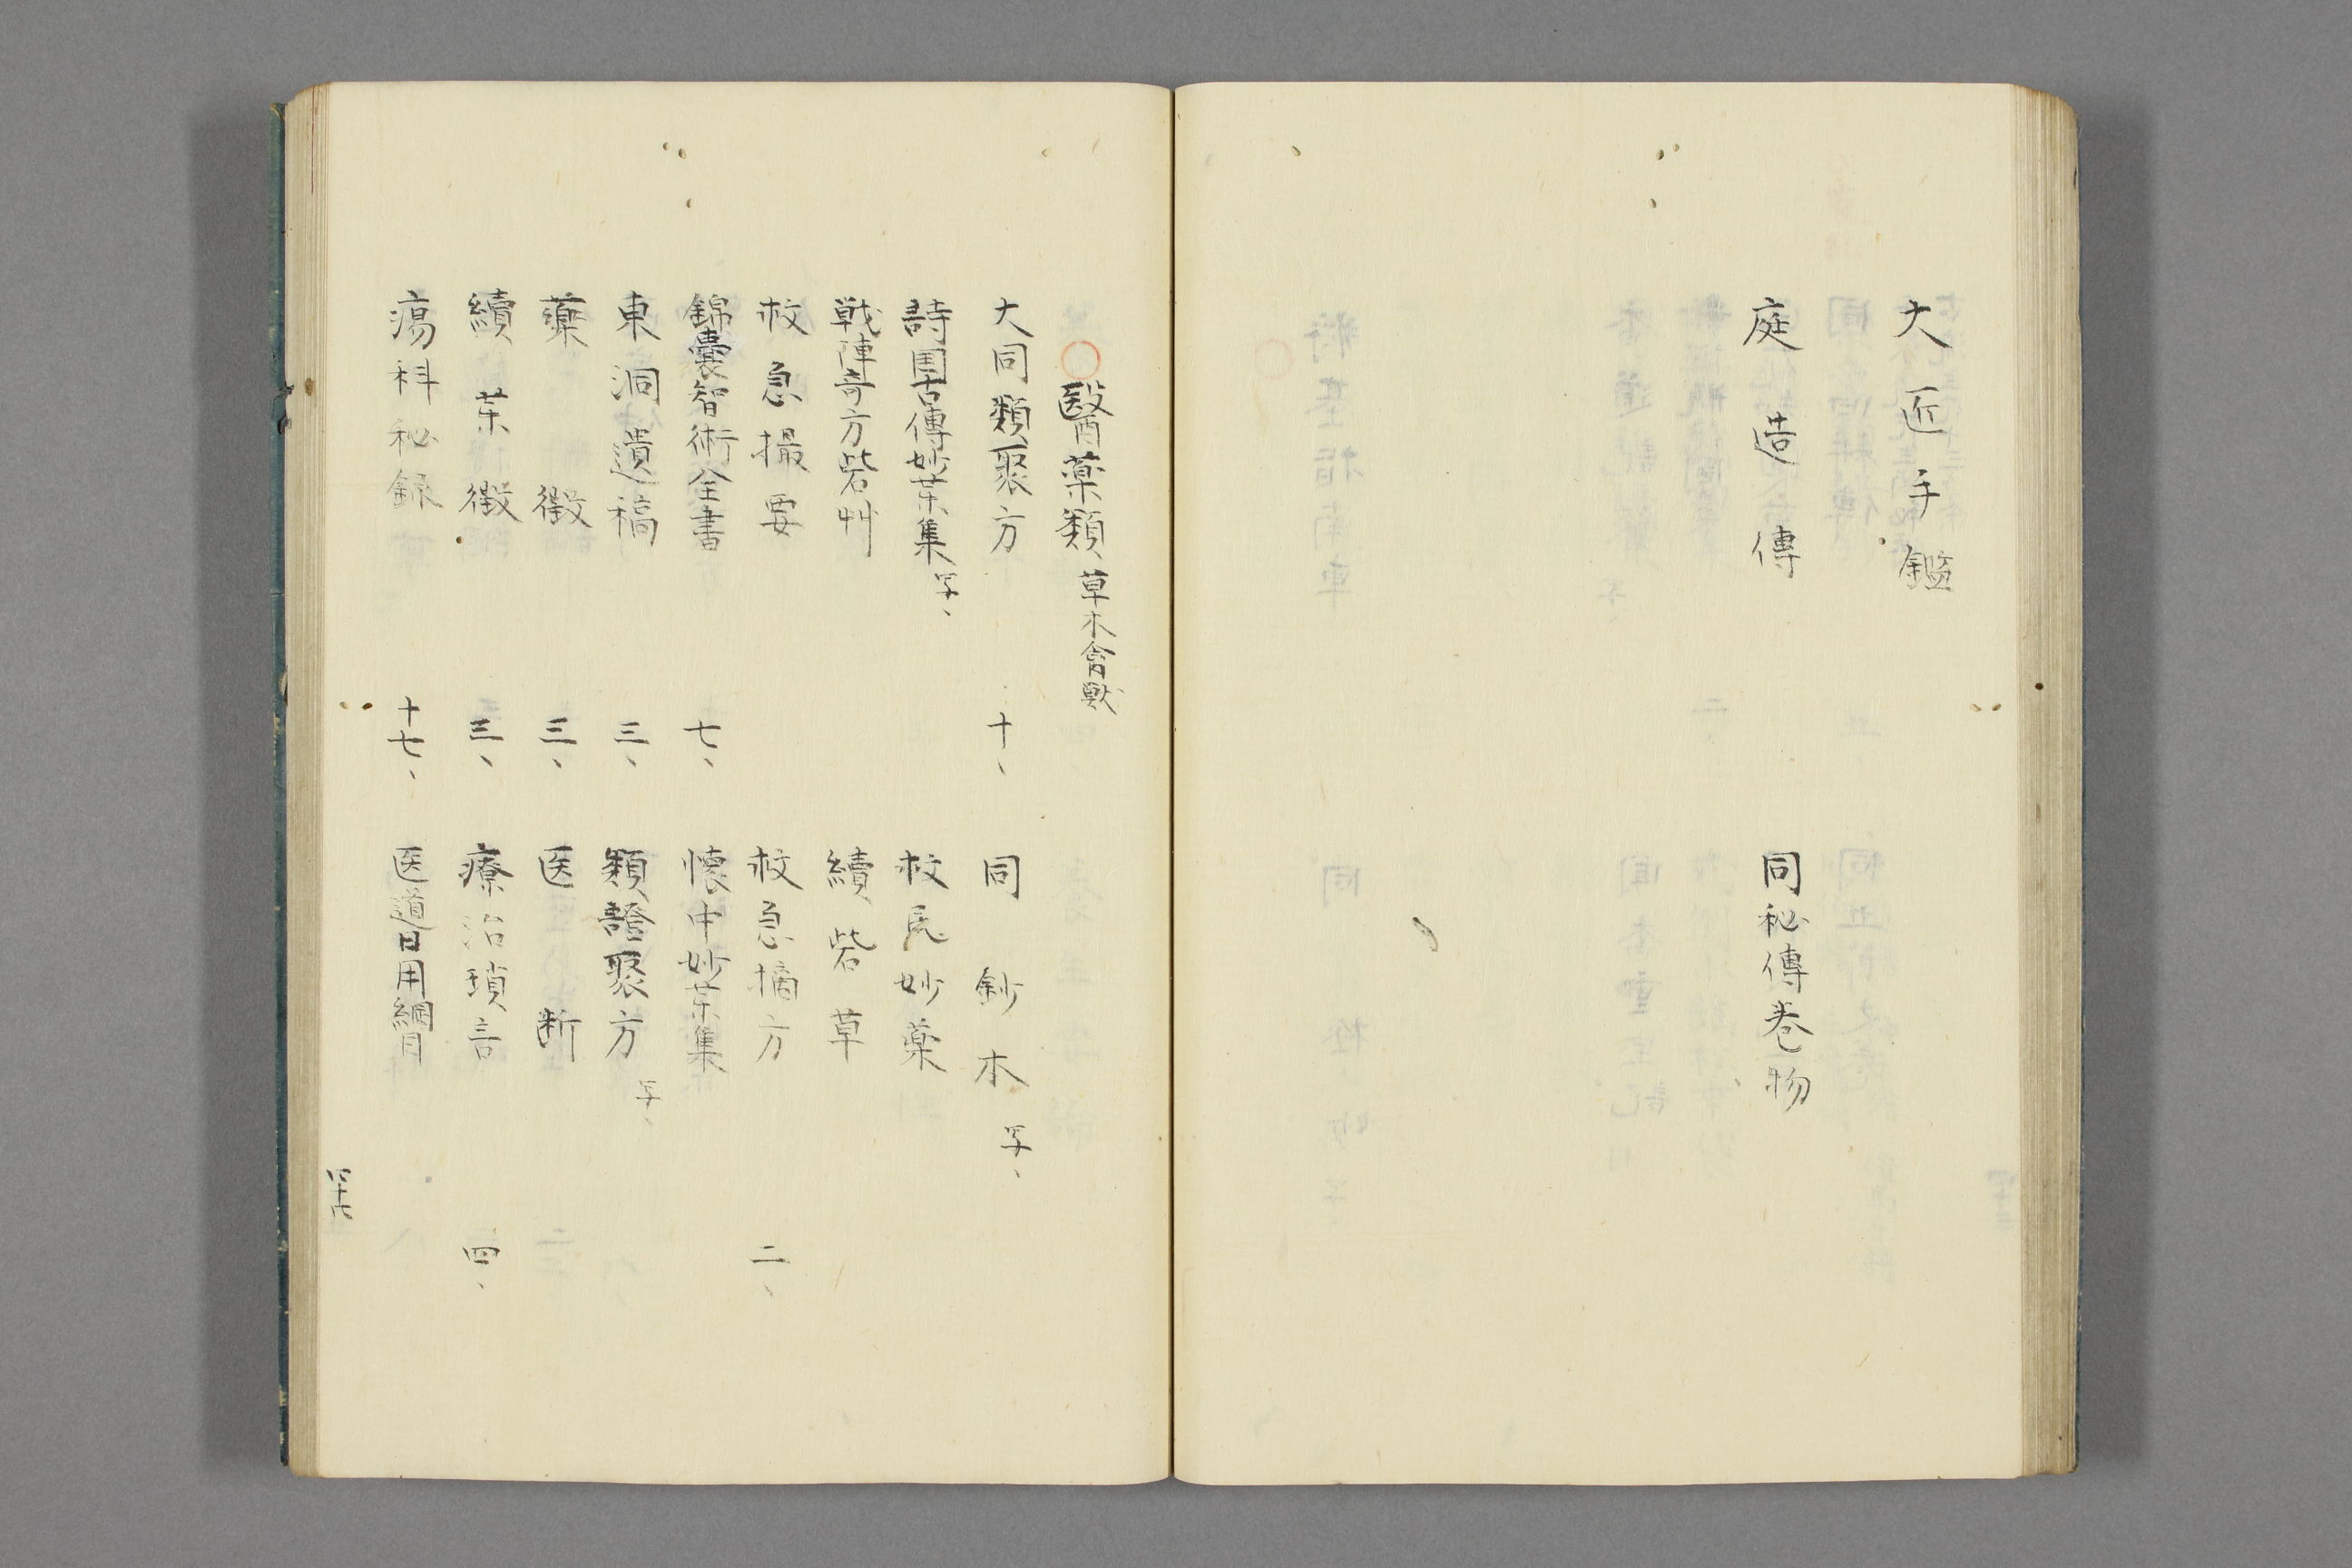 大匠手鑑
庭造傳 同秘傳巻物
○醫薬類 草木禽獣
大同類聚方 十、 同鈔本 写、
詩園古傳妙茶集 写、 救民妙薬
戦陣奇方砦艸 續砦草
救急撮要 救急摘方 二、
錦嚢智術全書 七、 懐中妙茶集
東洞遺稿 三、 類證聚方 写、
藥徴 三、 医断
續茶徴 三、 療治瑣言 四、
瘍科秘録 十七、 医道日用綱目